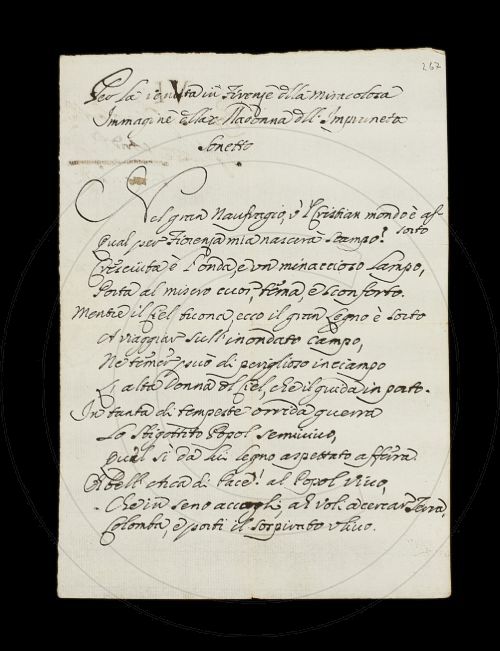 267
Per la venuta in Firenze della miracolosa
Immagine della Madonna dell' Impruneta
Sonetto
Nel gran Naufragio, v' l' Cristian mondo è as=
sorto
Qual per Fiorenza mia nascerà scampo?
Cresciuta è l'onda, e un minaccioso Lampo,
Porta al misero cuor, tema, e sconforto.
Mentre il Ciel tuona, ecco il gran Legno è sorto
A viaggiar sull' inondato campo,
Ne temer può di periglioso inciampo
L' alta Donna del Ciel, che il guida in porto.
In tanta di tempeste orrida guerra
Lo sbigottito Popol semivivo,
Qual si da lui legno aspettato afferra.
O bell' Arca di Pace! al Popol vivo,
Che in seno accogli, a voli a cercar Terra,
Colomba, e porti il sospirato Ulivo.